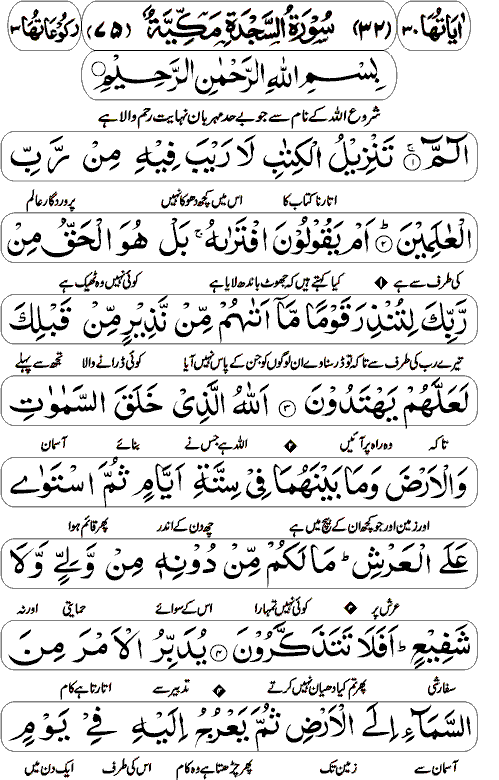 اٰیَاتُهَا ۳۰ (۳۲) سُوْرَةُ السَّجْدَةِ مَكِّيَّةٌ (۷۵) رُكُوْعَاتُهَا ۳
بِسْمِ اللهِ الرَّحْمٰنِ الرَّحِيْمِ
شروع اللہ کے نام سے جو بے حد مہربان نہایت رحم والا ہے
الٓمّٓ ۚ﴿۱﴾ تَنْزِيْلُ الْكِتٰبِ لَا رَيْبَ فِيْهِ مِنْ رَّبِّ
اتارنا کتاب کا اس میں کچھ دھوکا نہیں پروردگار عالم
الْعٰلَمِيْنَ ؕ﴿۲﴾ اَمْ يَقُوْلُوْنَ افْتَرٰىهُ ۚ بَلْ هُوَ الْحَقُّ مِنْ
کی طرف سے ہے ۱ کیا کہتے ہیں کہ جھوٹ باندھ لایا ہے کوئی نہیں وہ ٹھیک ہے
رَّبِّكَ لِتُنْذِرَ قَوْمًا مَّاۤ اَتٰىهُمْ مِّنْ نَّذِيْرٍ مِّنْ قَبْلِكَ
تیرے رب کی طرف سے تاکہ تو ڈر سناوے ان لوگوں کو جن کے پاس نہیں آیا کوئی ڈرانے والا تجھ سے پہلے
لَعَلَّهُمْ يَهْتَدُوْنَ ﴿۳﴾ اَللهُ الَّذِيْ خَلَقَ السَّمٰوٰتِ
تاکہ وہ راہ پر آئیں ۲ اللہ ہے جس نے بنائے آسمان
وَالْاَرْضَ وَمَا بَيْنَهُمَا فِيْ سِتَّةِ اَيَّامٍ ثُمَّ اسْتَوٰى
اور زمین اور جو کچھ ان کے بیچ میں ہے چھ دن کے اندر پھر قائم ہوا
عَلَى الْعَرْشِ ؕ مَا لَكُمْ مِّنْ دُوْنِهٖ مِنْ وَّلِيٍّ وَّلَا
عرش پر کوئی نہیں تمہارا اس کے سوائے حمایتی اور نہ
شَفِيْعٍ ؕ اَفَلَا تَتَذَكَّرُوْنَ ﴿۴﴾ يُدَبِّرُ الْاَمْرَ مِنَ
سفارشی پھر تم کیا دھیان نہیں کرتے تدبیر سے اتارتا ہے کام
السَّمَآءِ اِلَى الْاَرْضِ ثُمَّ يَعْرُجُ اِلَيْهِ فِيْ يَوْمٍ
آسمان سے زمین تک پھر چڑھتا ہے وہ کام اس کی طرف ایک دن میں